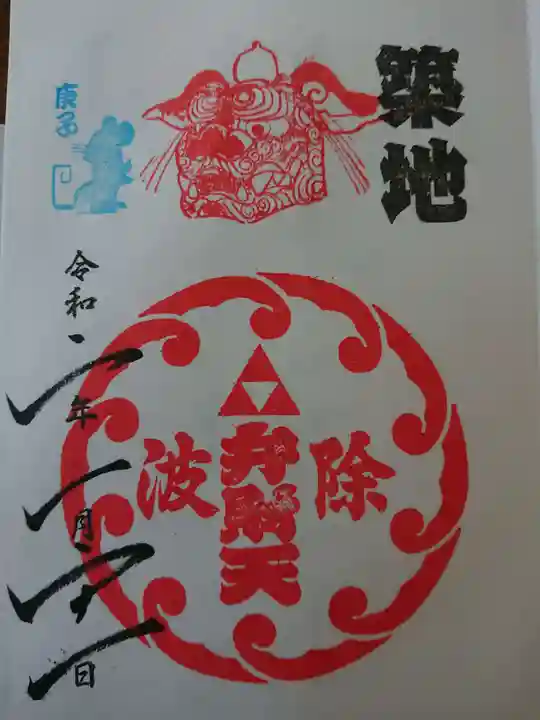 築地
除
弁財天
波
庚子
令和二年一月廿一日